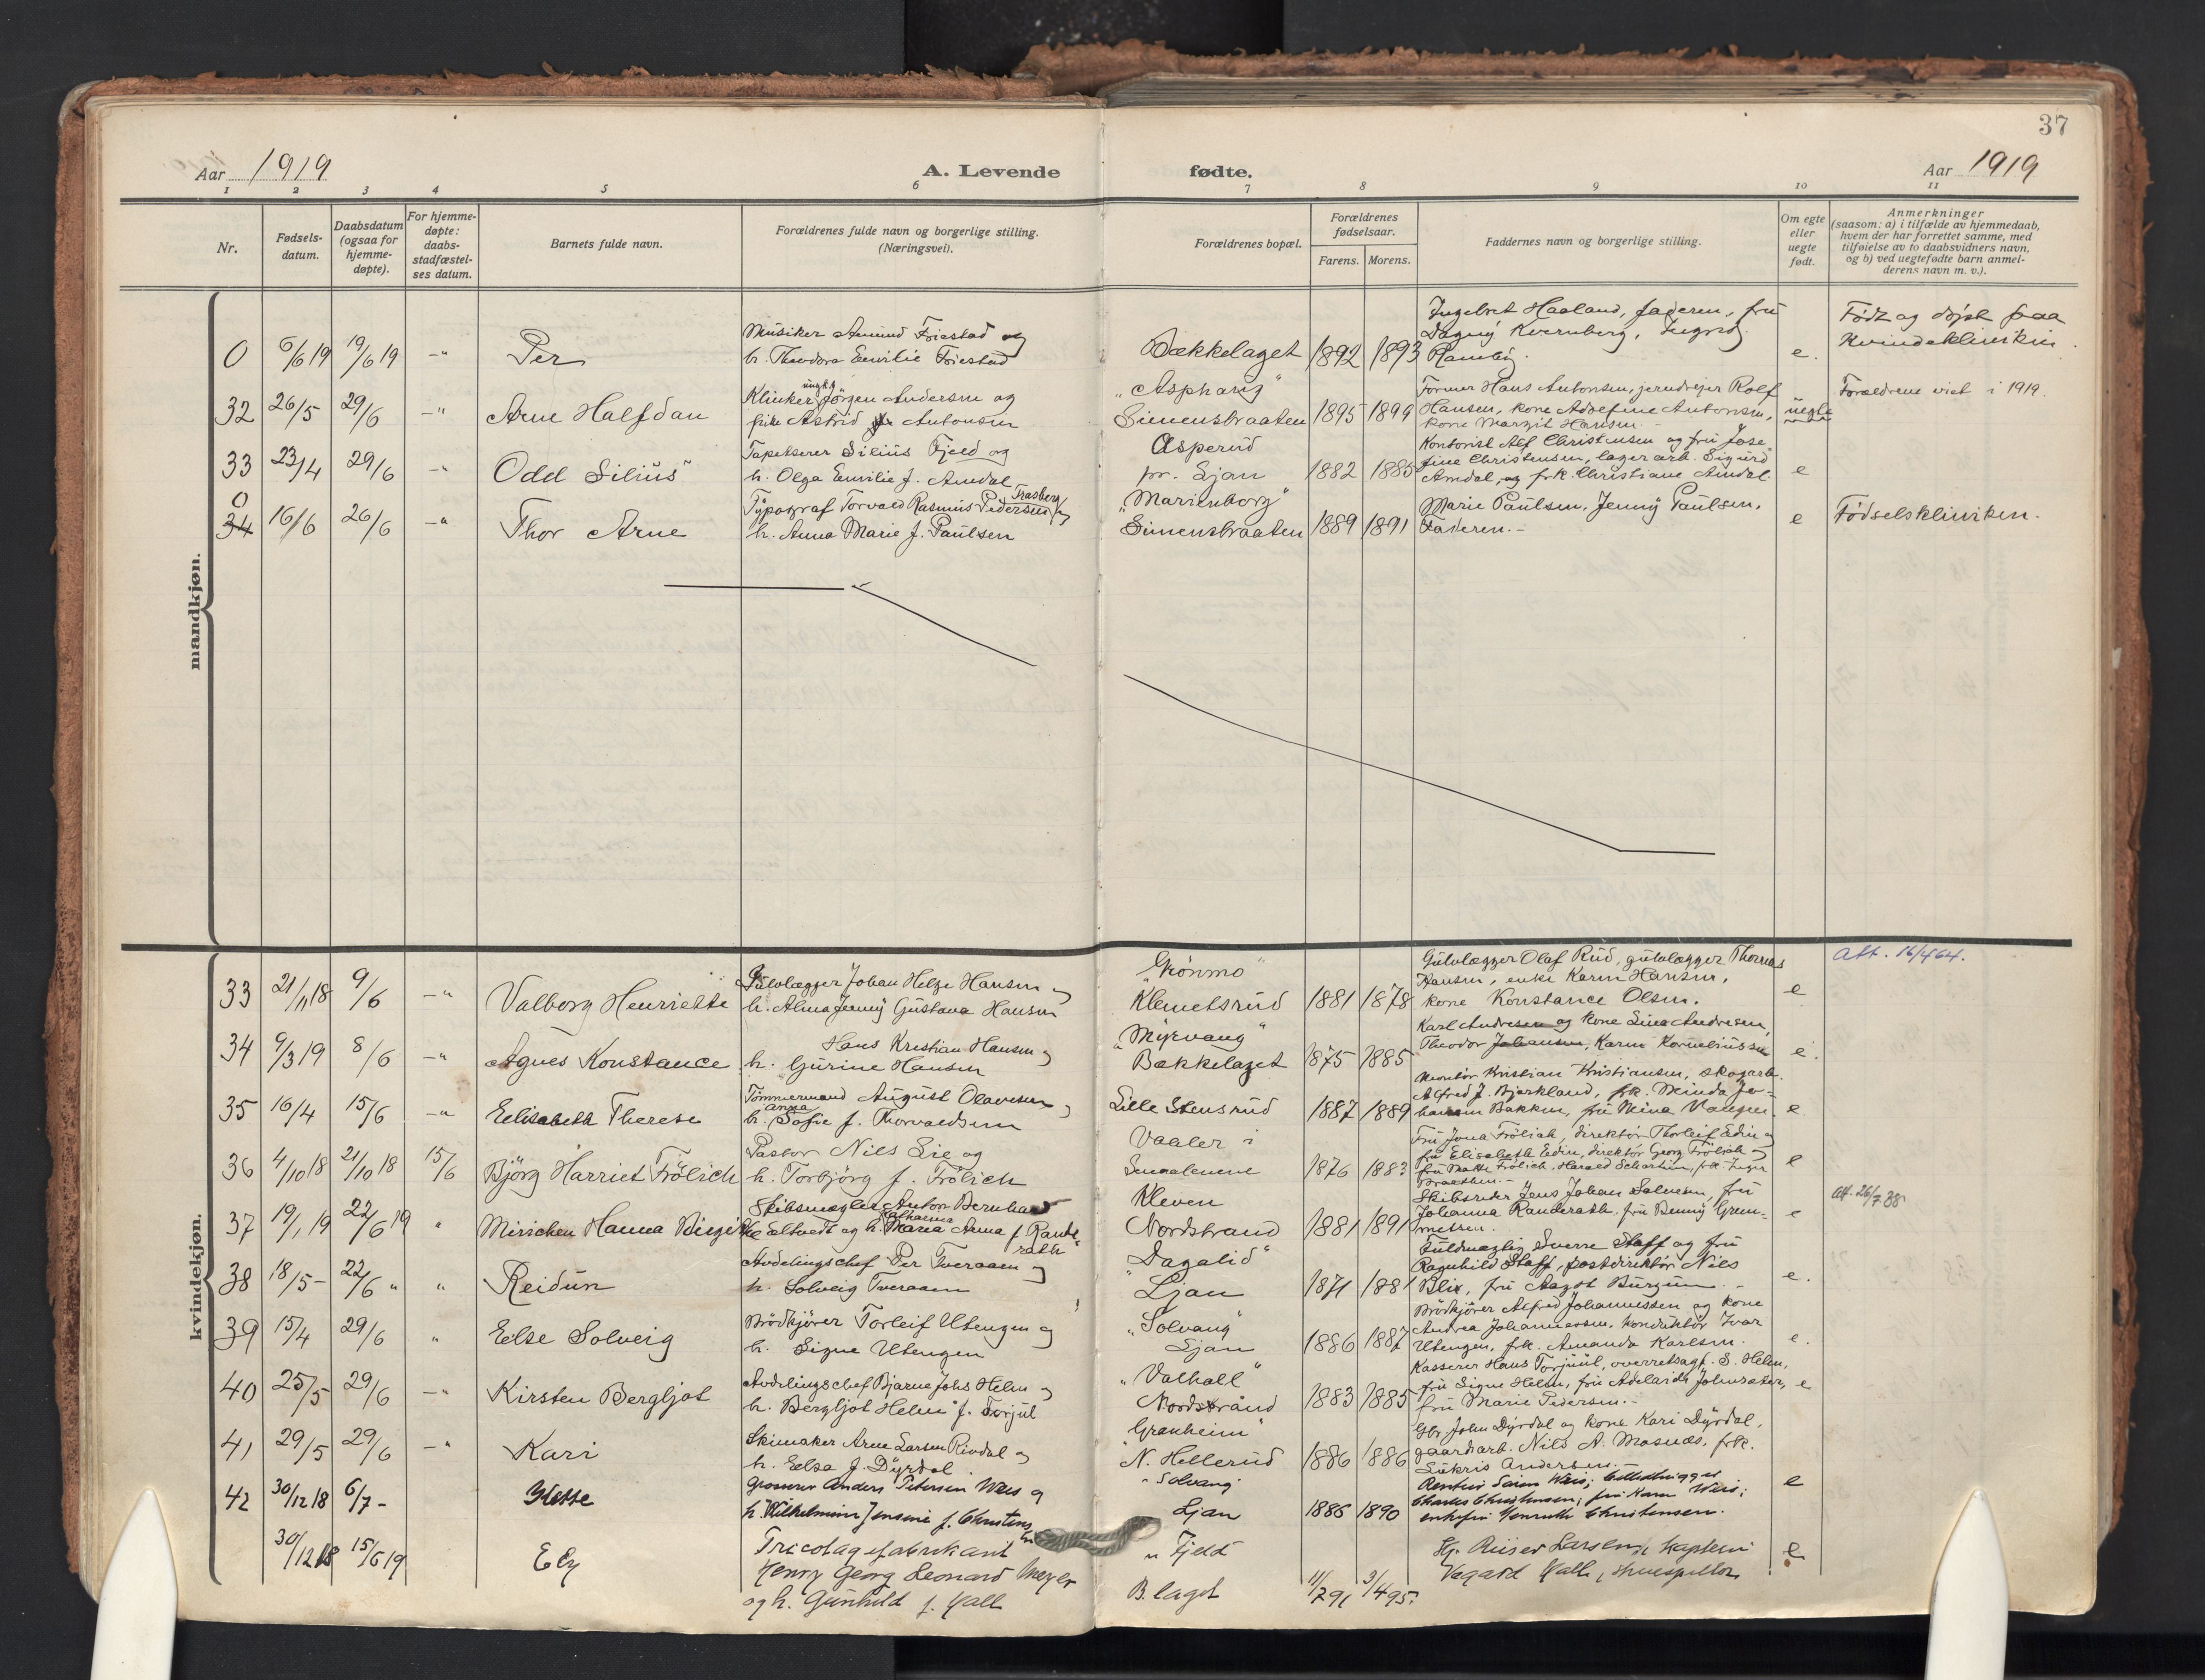 37
Aar 1919
A. Levende fødte.
Aar 1919
1 2 3 4 5 6 7 8 9 10 11
Nr.
Fødsels-
datum.
Daabsdatum
(ogsaa for
hjemme-
døpte).
For hjemme-
døpte:
daabs-
stadfæstel-
ses datum.
Barnets fulde navn.
Forældrenes fulde navn og borgerlige stilling.
(Næringsvei).
Forældrenes bopæl.
Forældrenes
fødselsaar.
Farens. Morens.
Faddernes navn og borgerlige stilling.
Om egte
eller
uegte
født.
Anmerkninger
(saasom: a) i tilfælde av hjemmedaab,
hvem der har forrettet samme, med
tilføielse av to daabsvidners navn,
og b) ved uegtefødte barn anmel-
derens navn m. v.).
mandkjøn.
0 6/6 19 19/6 19 -"- Per
Musiker Amund Friestad og
h. Theodora Emilie Friestad
Bækkelaget 1892 1893
Ingebret Haaland, faderen, fru
Dagny Kvernberg, Ingrid
e.
Født og døpt paa
Kvindeklinikken
32 26/5 29/6 -"- Arne Halfdan
Klinker ungk. Jörgen Andersen og
pike Astrid Antonsen
"Asphaug"
Simensbraaten 1895 1899
Former Hans Antonsen, jerndreier Rolf
Hansen, kone Adolfine Antonsen,
kone Margit Hansen
uegte
Forældrene viet i 1919.
33 23/4 29/6 -"- Odd Silius
Tapetserer Silius Fjeld og
h. Olga Emilie f. Amdal
Asperud
pr. Ljan 1882 1885
Kontorist Alf Christensen og fru Jose-
fine Christensen, lagerarb. Sigurd
Amdal, og frk. Christiane Amdal.
e
0
34 16/6 26/6 -"- Thor Arne
Typograf Torvald Rasmus Pedersen Trasberg og
h. Anna Marie f. Paulsen
"Marienborg"
Simensbraaten 1889 1891
Marie Paulsen, Jenny Paulsen,
Faderen.-
e
Fødselsklinikken.
kvindekjøn.
33 21/11 18 9/6 -"- Valborg Henriette
Gulvlægger Johan Helge Hansen og
h. Alma Jenny Gustava Hansen
"Grønmo"
Klemetsrud 1881 1878
Gulvlægger Olaf Rud, gulvlægger Thomas
Hansen, enke Karen Hansen,
kone Konstance Olsen.
e
Att. 16/4 64.
34 9/3 19 8/6 -"- Agnes Konstance
Hans Kristian Hansen og
h. Gurine Hansen
"Myrvang"
Bækkelaget 1875 1885
Karl Andresen og kone Lina Andresen,
Theodor Johansen, Karen Korneliussen
e.
35 16/4 15/6 -"- Elisabeth Therese
Tømmermand August Olavesen og
h. Anna Sofie f. Thorvaldsen
Lille Stensrud 1887 1889
Montör Kristian Kristiansen, skogarb.
Alfred J. Bjørkland, frk. Minda Jo-
hansen Bakken, fru Mina Vangen.
e
36 4/10 18 21/10 18 15/6 Björg Harriet Frölich
Pastor Nils Lie og
h. Torbjörg f. Frölich
Vaaler i
Smaalenene 1876 1883
Fru Jona Frölich, direktör Thorleif Edin og
fru Elisabeth Edin, direktör Georg Frölich og
e
37 19/1 19 22/6 19 " Mirschen Hanna Birgitte
Skibsmægler Anton Bernhard
Eltvedt og h. Katharina Maria Anna f. Rande-
rath
Kleven
Nordstrand 1881 1891
Skibsreder Jens Johan Salvesen, fru
Johanna Randerath, fru Benny Grem-
metsen.
e
Att. 26/7 38
38 18/5 - 22/6 " " Reidun
Avdelingschef Per Tveraaen og
h. Solveig Tveraaen
"Dagalid"
Ljan 1871 1881
Fuldmægtig Sverre Staff og fru
Ragnhild Staff, postdirektör Nils
Blix, fru Aagot Burzum.-
e.
39 15/4 29/6 " Else Solveig
Brödkjörer Torleif Utengen og
h. Signe Utengen
"Solvang"
Ljan 1886 1887
Brödkjörer Alfred Johannessen og kone
Andrea Johannessen, konduktör Ivar
Utengen, frk. Amanda Karlsen.
e.
40 25/5 29/6 -"- Kirsten Bergljot
Avdelingschef Bjarne Johs Helm og
h. Bergljot Helm f. Torjul
"Valhall"
Nordstrand 1883 1885
Kasserer Hans Torjuul, overretssagf. S. Helm,
fru Signe Helm, fru Adelaide Johnsæter,
fru Marie Pedersen.-
e
41 29/5 29/6 -"- Kari
Skimaker Arne Larsen Rindal og
h. Elsa f. Dyrdal.
"Granheim"
N. Hellerud 1886 1886
Gbr. John Dyrdal og kone Kari Dyrdal,
gaardsarb. Nils A. Mosnæs, frk.
Andersen.
42 30/12 18 6/7 - Mette
Grosserer Anders Petersen Weis og
h. Wilhelmine Jensine f. Christensen
"Solvang"
Ljan 1886 1890
Rentier Sören Weis;
Charles Christensen; fru Karen Weis;
enkefru Henriette Christensen.
e
30/12 18 15/6 19 Ely
Tricotagefabrikant
Henry Georg Leonard Meyer
og h. Gunhild f. Hall
"Fjeld"
B.laget 11/2 91 3/4 95.
Hj. Riiser Larsen, kaptein
Vagard Hall, skuespiller
e